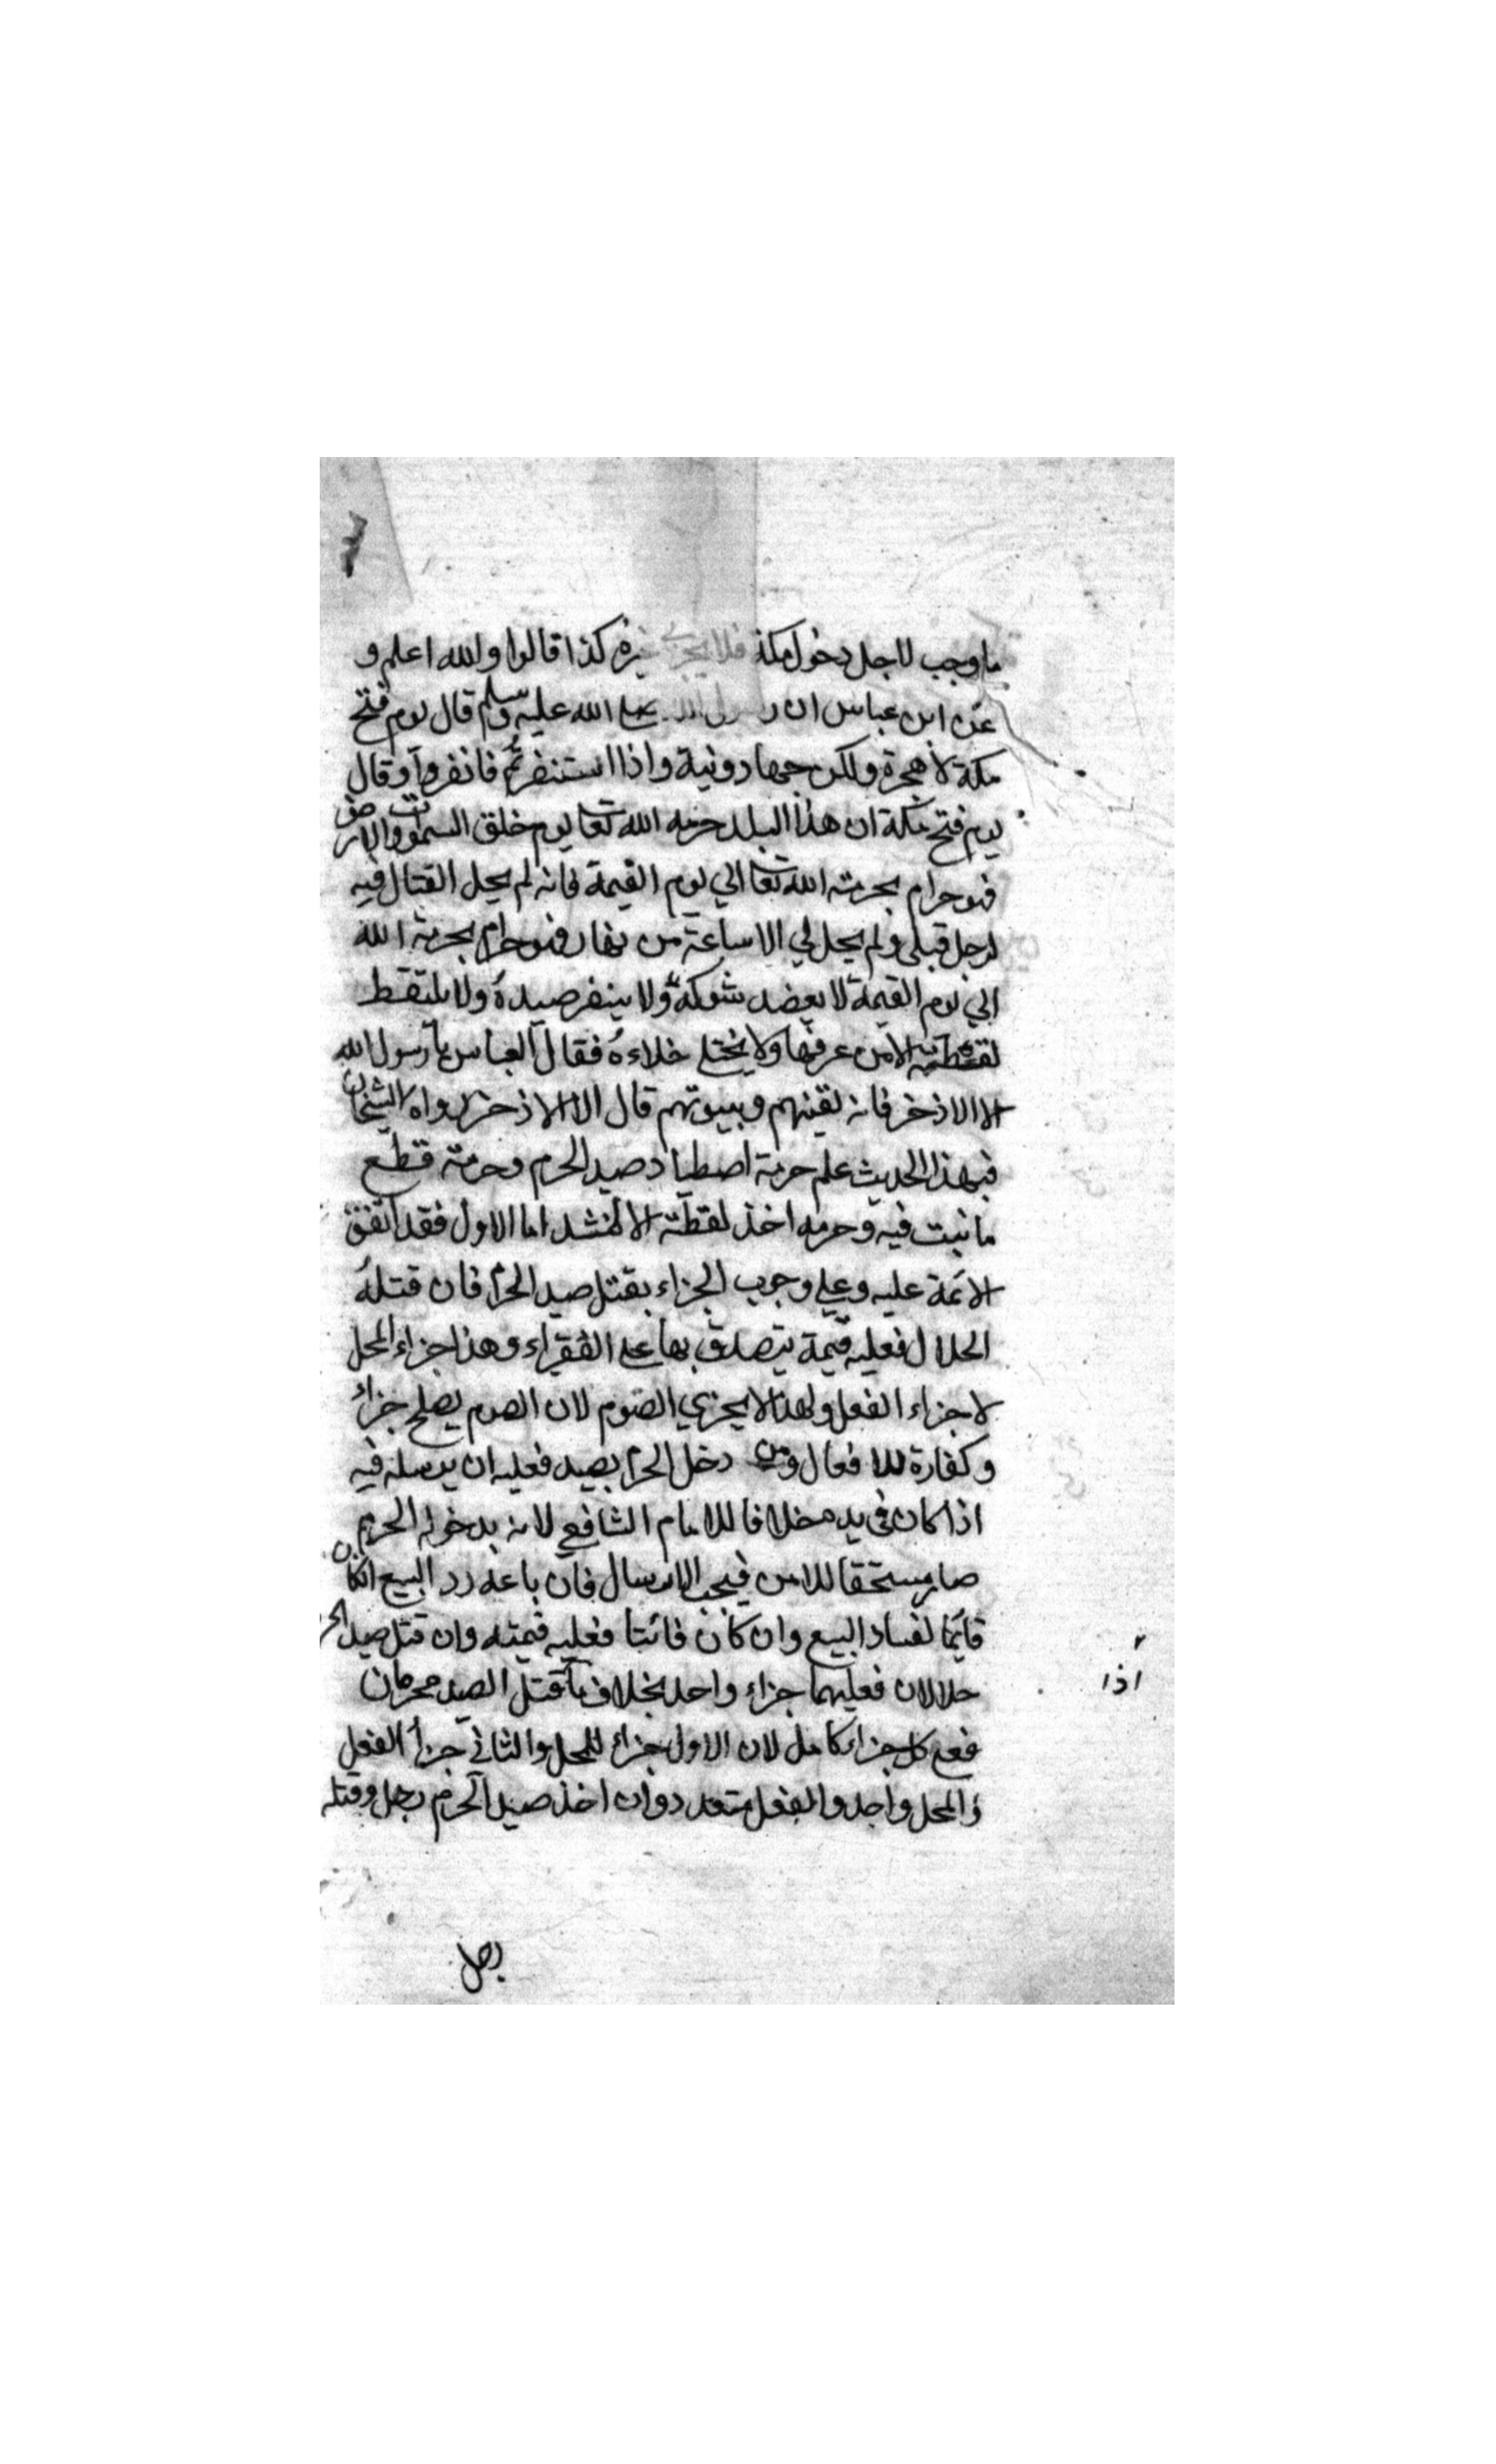 ما وجب لاجل دخول مكة فلا يجزي غيره كذا قالوا والله اعلم و
عن ابن عباس ان رسول الله صلى الله عليه وسلم قال يوم فتح
مكة لا هجرة ولكن جهاد ونية واذا استنفرتم فانفروا وقال
يوم فتح مكة ان هذا البلد حرمه الله تعا يوم خلق السموات والارض
فهو حرام بحرمته الله تعا الي يوم القيمة فانه لم يحل القتال فيه
لرجل قبلي ولم يحل لي الا ساعة من نهار فهو حرام بحرمة الله
الي يوم القيمة لا يعضد شوكة ولا ينفر صيده ولا يلتقط
لقطته الا من عرفها ولا يختلي خلاءه فقال العباس يا رسول الله
الا الاذخر فانه لقينهم وبيوتهم قال الا الاذخر رواه الشيخان
فبهذا الحديث علم حرمة اصطياد صيد الحرم وحرمة قطع
ما نبت فيه وحرمه اخذ لقطته الا لمنشد اما الاول فقد اتفق
الائمة عليه وعلي وجوب الجزاء بقتل صيد الحرم فان قتله
الحلال فعليه قيمة يتصدق بها علي الفقراء وهذا جزاء المحل
لا جزاء الفعل ولهذا لا يجزي الصوم لان الصوم يصلح جزاء
وكفارة للافعال ومن دخل الحرم بصيد فعليه ان يرسله فيه
اذا كان في يده خلافا للامام الشافعي لانه بدخوله الحرم
صار مستحقا للامن فيجب الارسال فان باعه رد البيع انكان
قائما لفساد البيع وان كان فائتا فعليه قيمته وان قتل صيد الحر
حلالان فعليهما جزاء واحد بخلاف ما قتل الصيد محرمان
اذا
فعلي كل جزاء كامل لان الاول جزاء للمحل والثاني جزأ الفعل
والمحل واحد والفعل متعدد وان اخذ صيد الحرم رجل وقتله
رجل